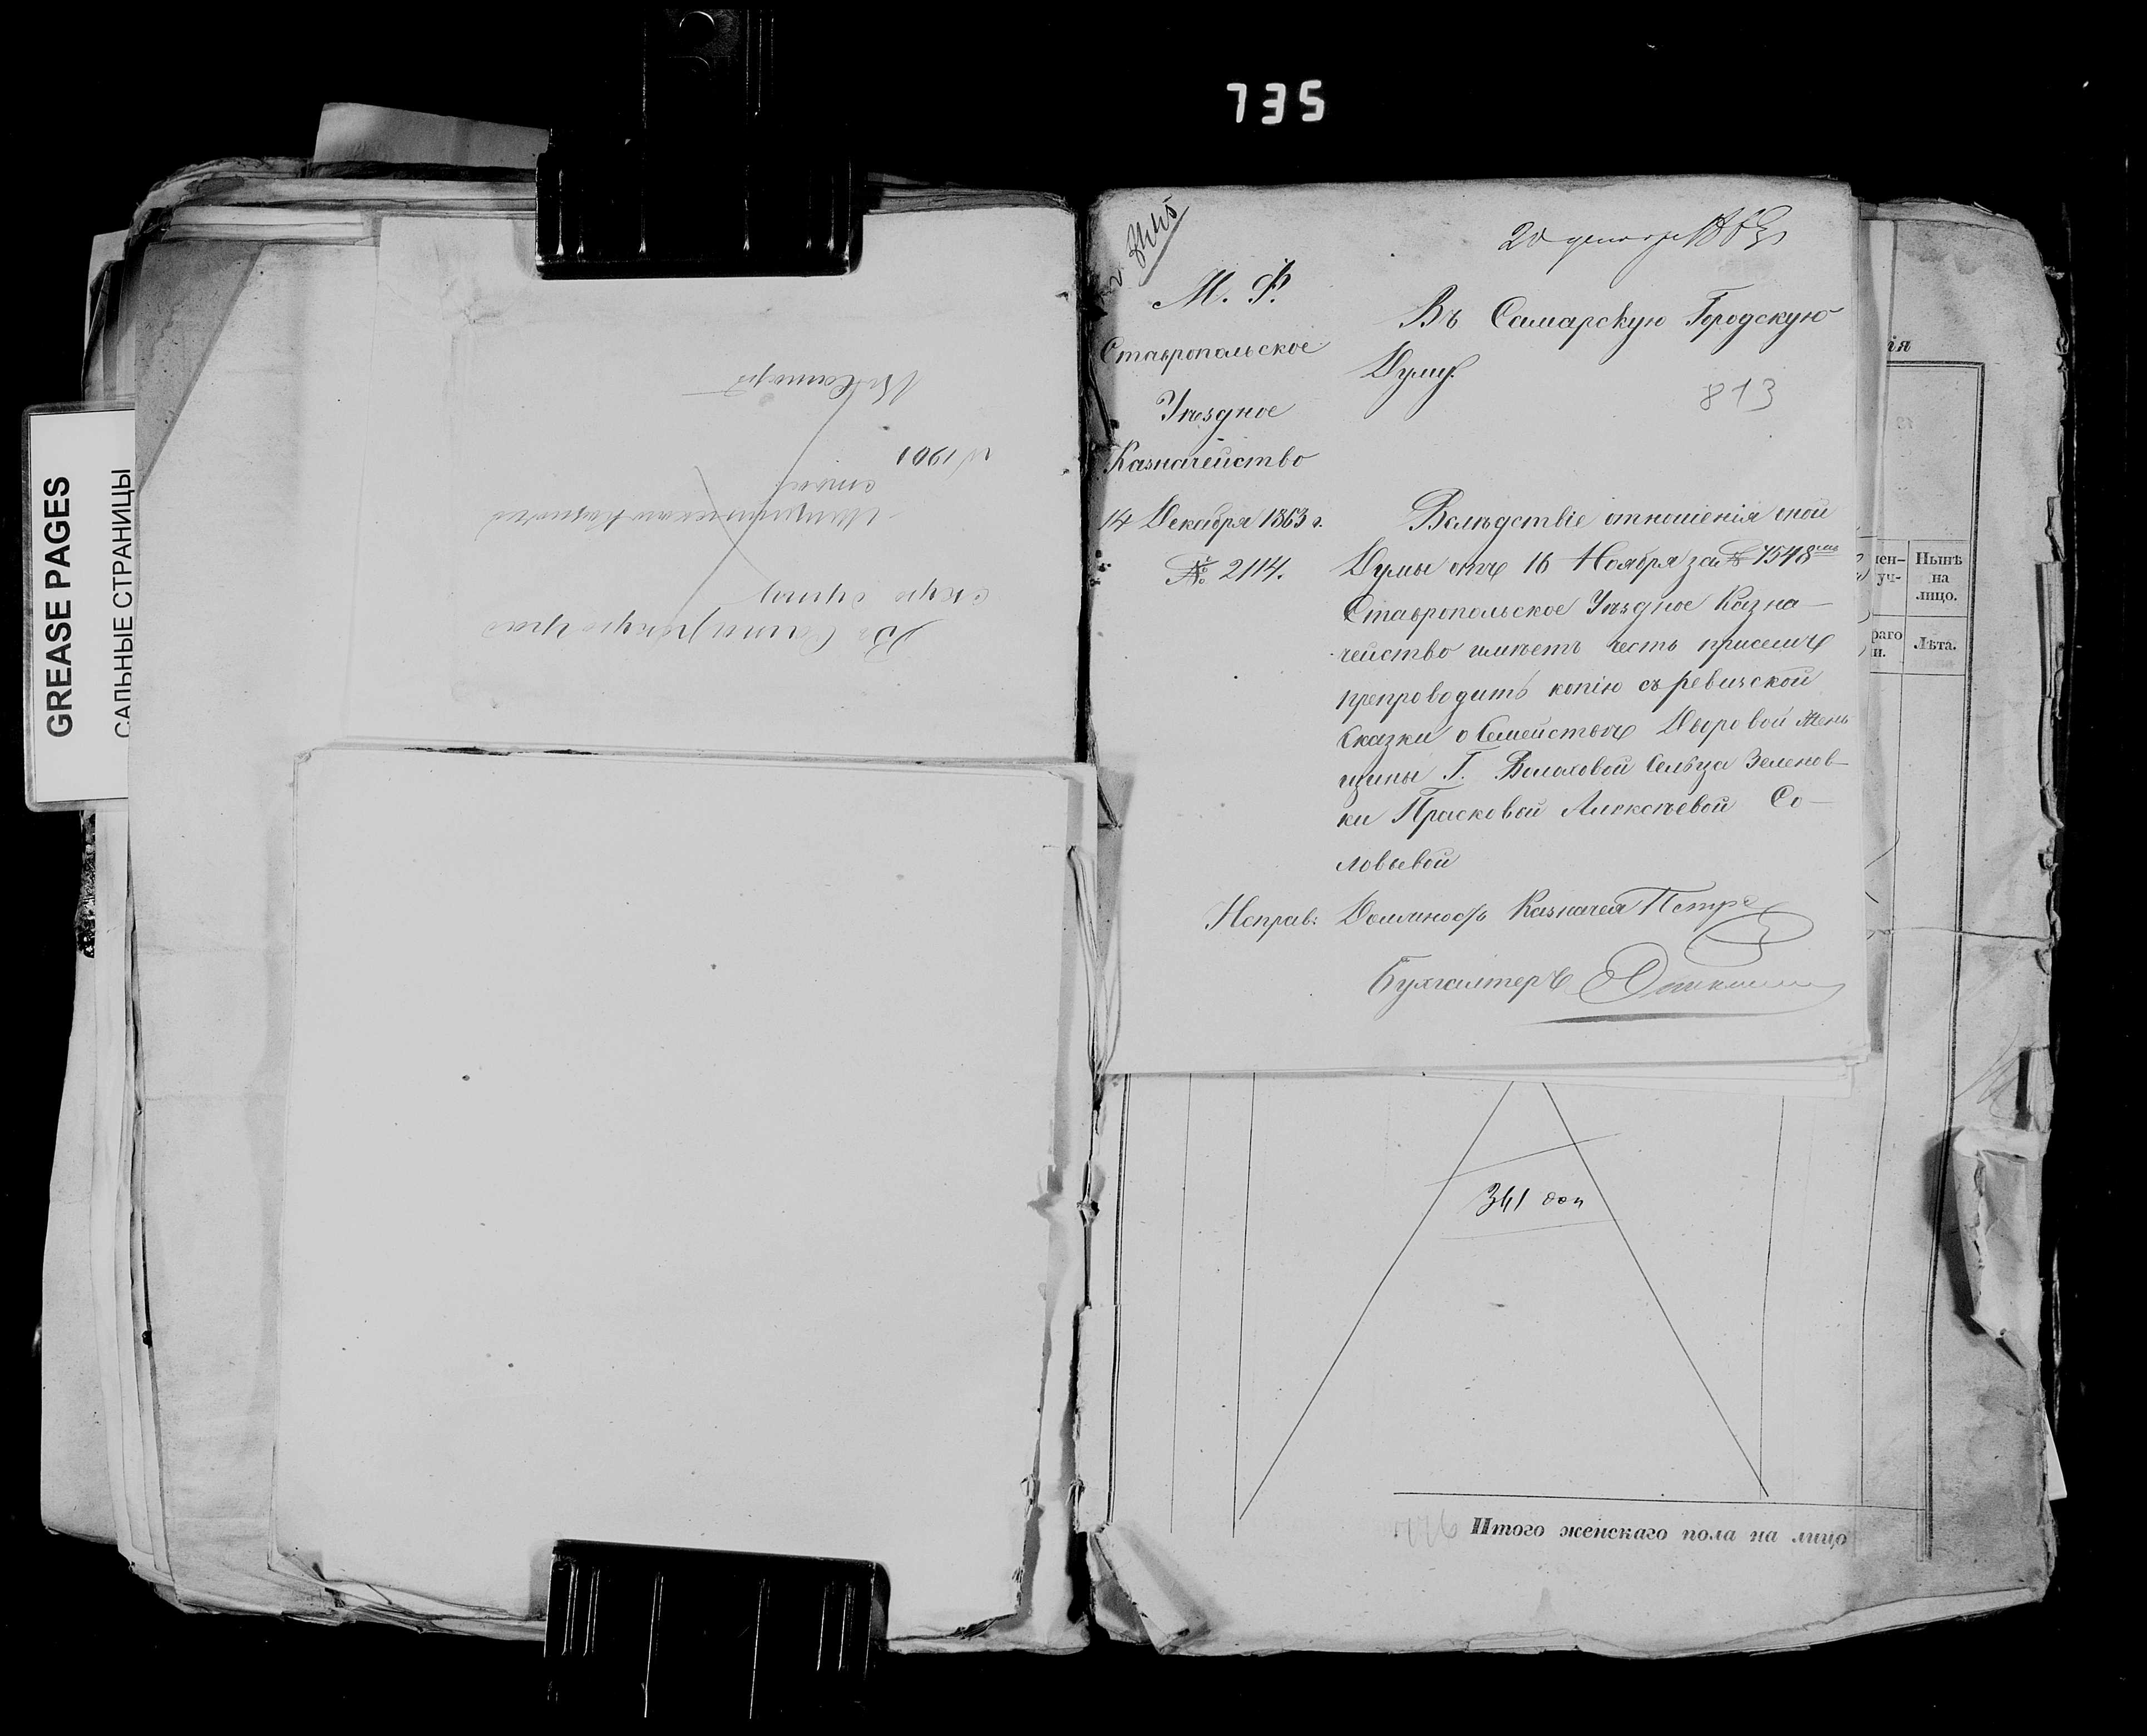 735
GREASE PAGES
САЛЬНЫЕ СТРАНИЦЫ
Въ Самарскую град
скую думу
казначей
ства
№ 1901
Въ Самару
20 декабр 1863
М. Ф.
Ставропольское
Уѣздное
Казначейство
14 Декабря 1863 г.
№ 2114.
Въ Самарскую Городскую
Думу.
813
Вслѣдствіе отношенія оной
Думы отъ 16 Ноября за № 7548
Ставропольское Уѣздное Казна-
чейство имѣетъ честь присемъ
препроводить копію съ ревизской
сказки о семействѣ Дворовой жен
щины Г. Сельца Зеленов-
ки Прасковой Алексѣевой Со-
ловьевой
Исправ: Должность Казначея Петре
Бухгалтеръ
ія
Нынѣ
на
лицо.
Лѣта.
361 доп
Итого женскаго пола на лицо